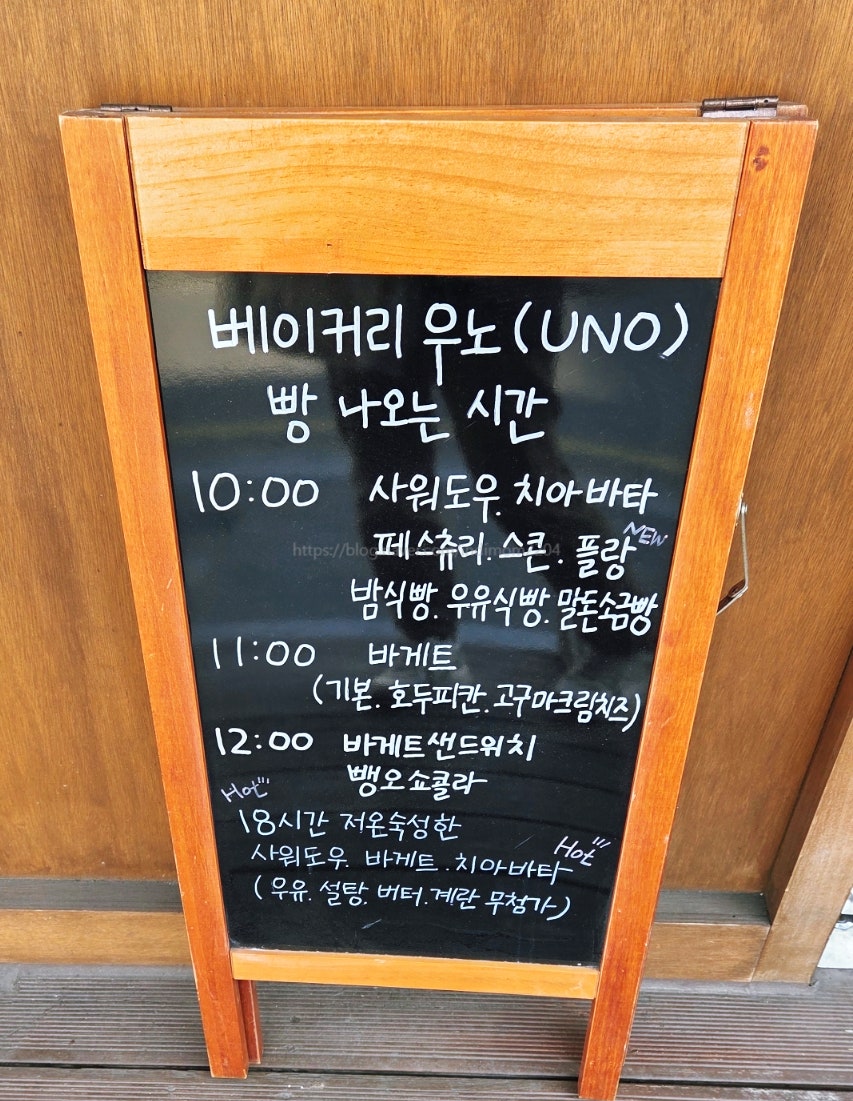 베이커리 우노(UNO)
빵 나오는 시간
10:00 사워도우. 치아바타
페스츄리. 스콘. 플랑 NEW
밤식빵. 우유식빵. 말돈소금빵
11:00 바게트
(기본. 호두피칸. 고구마크림치즈)
12:00 바게트샌드위치
뺑오쇼콜라
Hot
18시간 저온숙성한
사워도우. 바게트. 치아바타 Hot
(우유. 설탕. 버터. 계란 무첨가)